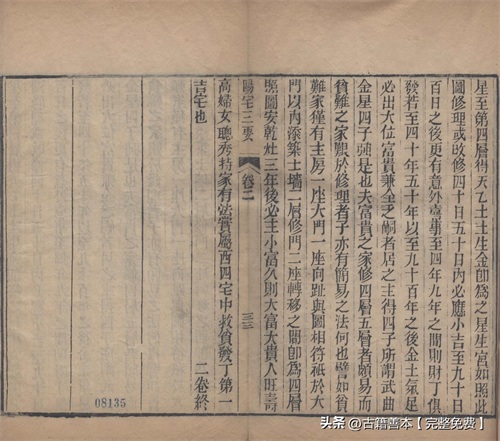 星至第四層得天乙土土生金即為生宮如照此
圖修理或改修四十日五十日內必應小吉至九十日
百日之後更有意外喜事至四年九年之間則財丁俱
發若至四十年五十年以至九十百年之後金土氣足
必出大位富貴兼全之嗣者居之主得四子所謂武曲
金星四子強是也夫富貴之家修四層五層者頗易而
貧難之家艱於修理者予亦有簡易之法何也譬如貧
難家僅有主房一座大門一座向趾與圖相符祇於大
門以內添築土墻二層修門二座轉移之間即為四層
照圖安乾灶三年後必主小富久則大富大貴人旺壽
陽宅三要
卷二
三三
高婦女聰秀持家有法實屬西四宅中救貧發丁第一
吉宅也
二卷終
08135
头条@古籍善本【完整免费】